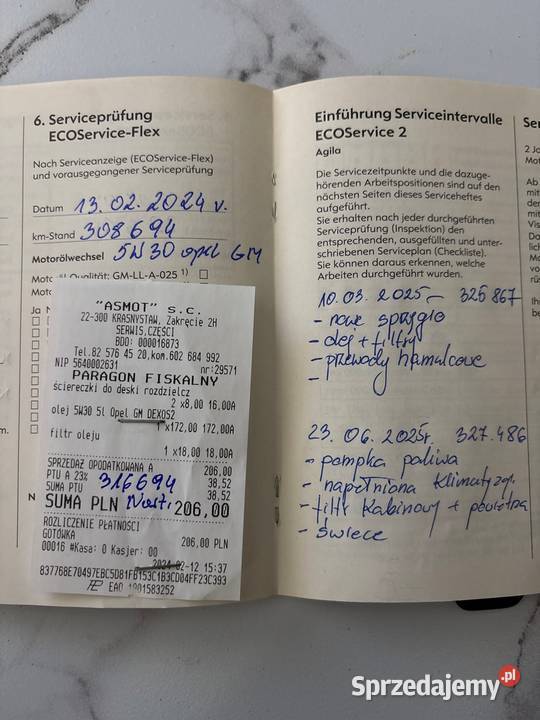 6. Serviceprüfung
ECOService-Flex
Nach Serviceanzeige (ECOService-Flex)
und vorausgegangener Serviceprüfung
Datum 13.02.2024 r.
km-Stand 308694
Motorölwechsel 5W30 opel GM
Qualität: GM-LL-A-025 1)
Ja
N
"ASMOT" s.c.
22-300 KRASNYSTAW, Zakręcie 2H
SERWIS,CZĘŚCI
BDO: 000016873
Tel.82 576 45 20,kom.602 684 992
NIP 5640002631 nr:29571
PARAGON FISKALNY
ściereczki do deski rozdzielcz
2 x8,00 16,00A
olej 5W30 5l Opel GM DEXOS2
1 x172,00 172,00A
filtr oleju
1 x18,00 18,00A
SPRZEDAŻ OPODATKOWANA A 206,00
PTU A 23% 38,52
SUMA PTU 38,52
316694
SUMA PLN 206,00
ROZLICZENIE PŁATNOŚCI
GOTÓWKA 206,00 PLN
00016 #Kasa: 0 Kasjer: 00
2024-02-12 15:37
837768E70497EBC5D81FB153C1B3CD04FF23C393
EAO 1901583252
Einführung Serviceintervalle
ECOService 2
Agila
Die Servicezeitpunkte und die dazuge-
hörenden Arbeitspositionen sind auf den
nächsten Seiten dieses Serviceheftes
aufgeführt.
Sie erhalten nach jeder durchgeführten
Serviceprüfung (Inspektion) den
entsprechenden, ausgefüllten und unter-
schriebenen Serviceplan (Checkliste).
Sie können daraus erkennen, welche
Arbeiten durchgeführt wurden.
10.03.2025 - 325867
- nowe sprzęgło
- olej + filtry
- przewody hamulcowe
-
23.06.2025r. 327.486
- pompka paliwa
- napełniona
- filtr kabinowy + powietrza
- świece
Sprzedajemy.pl